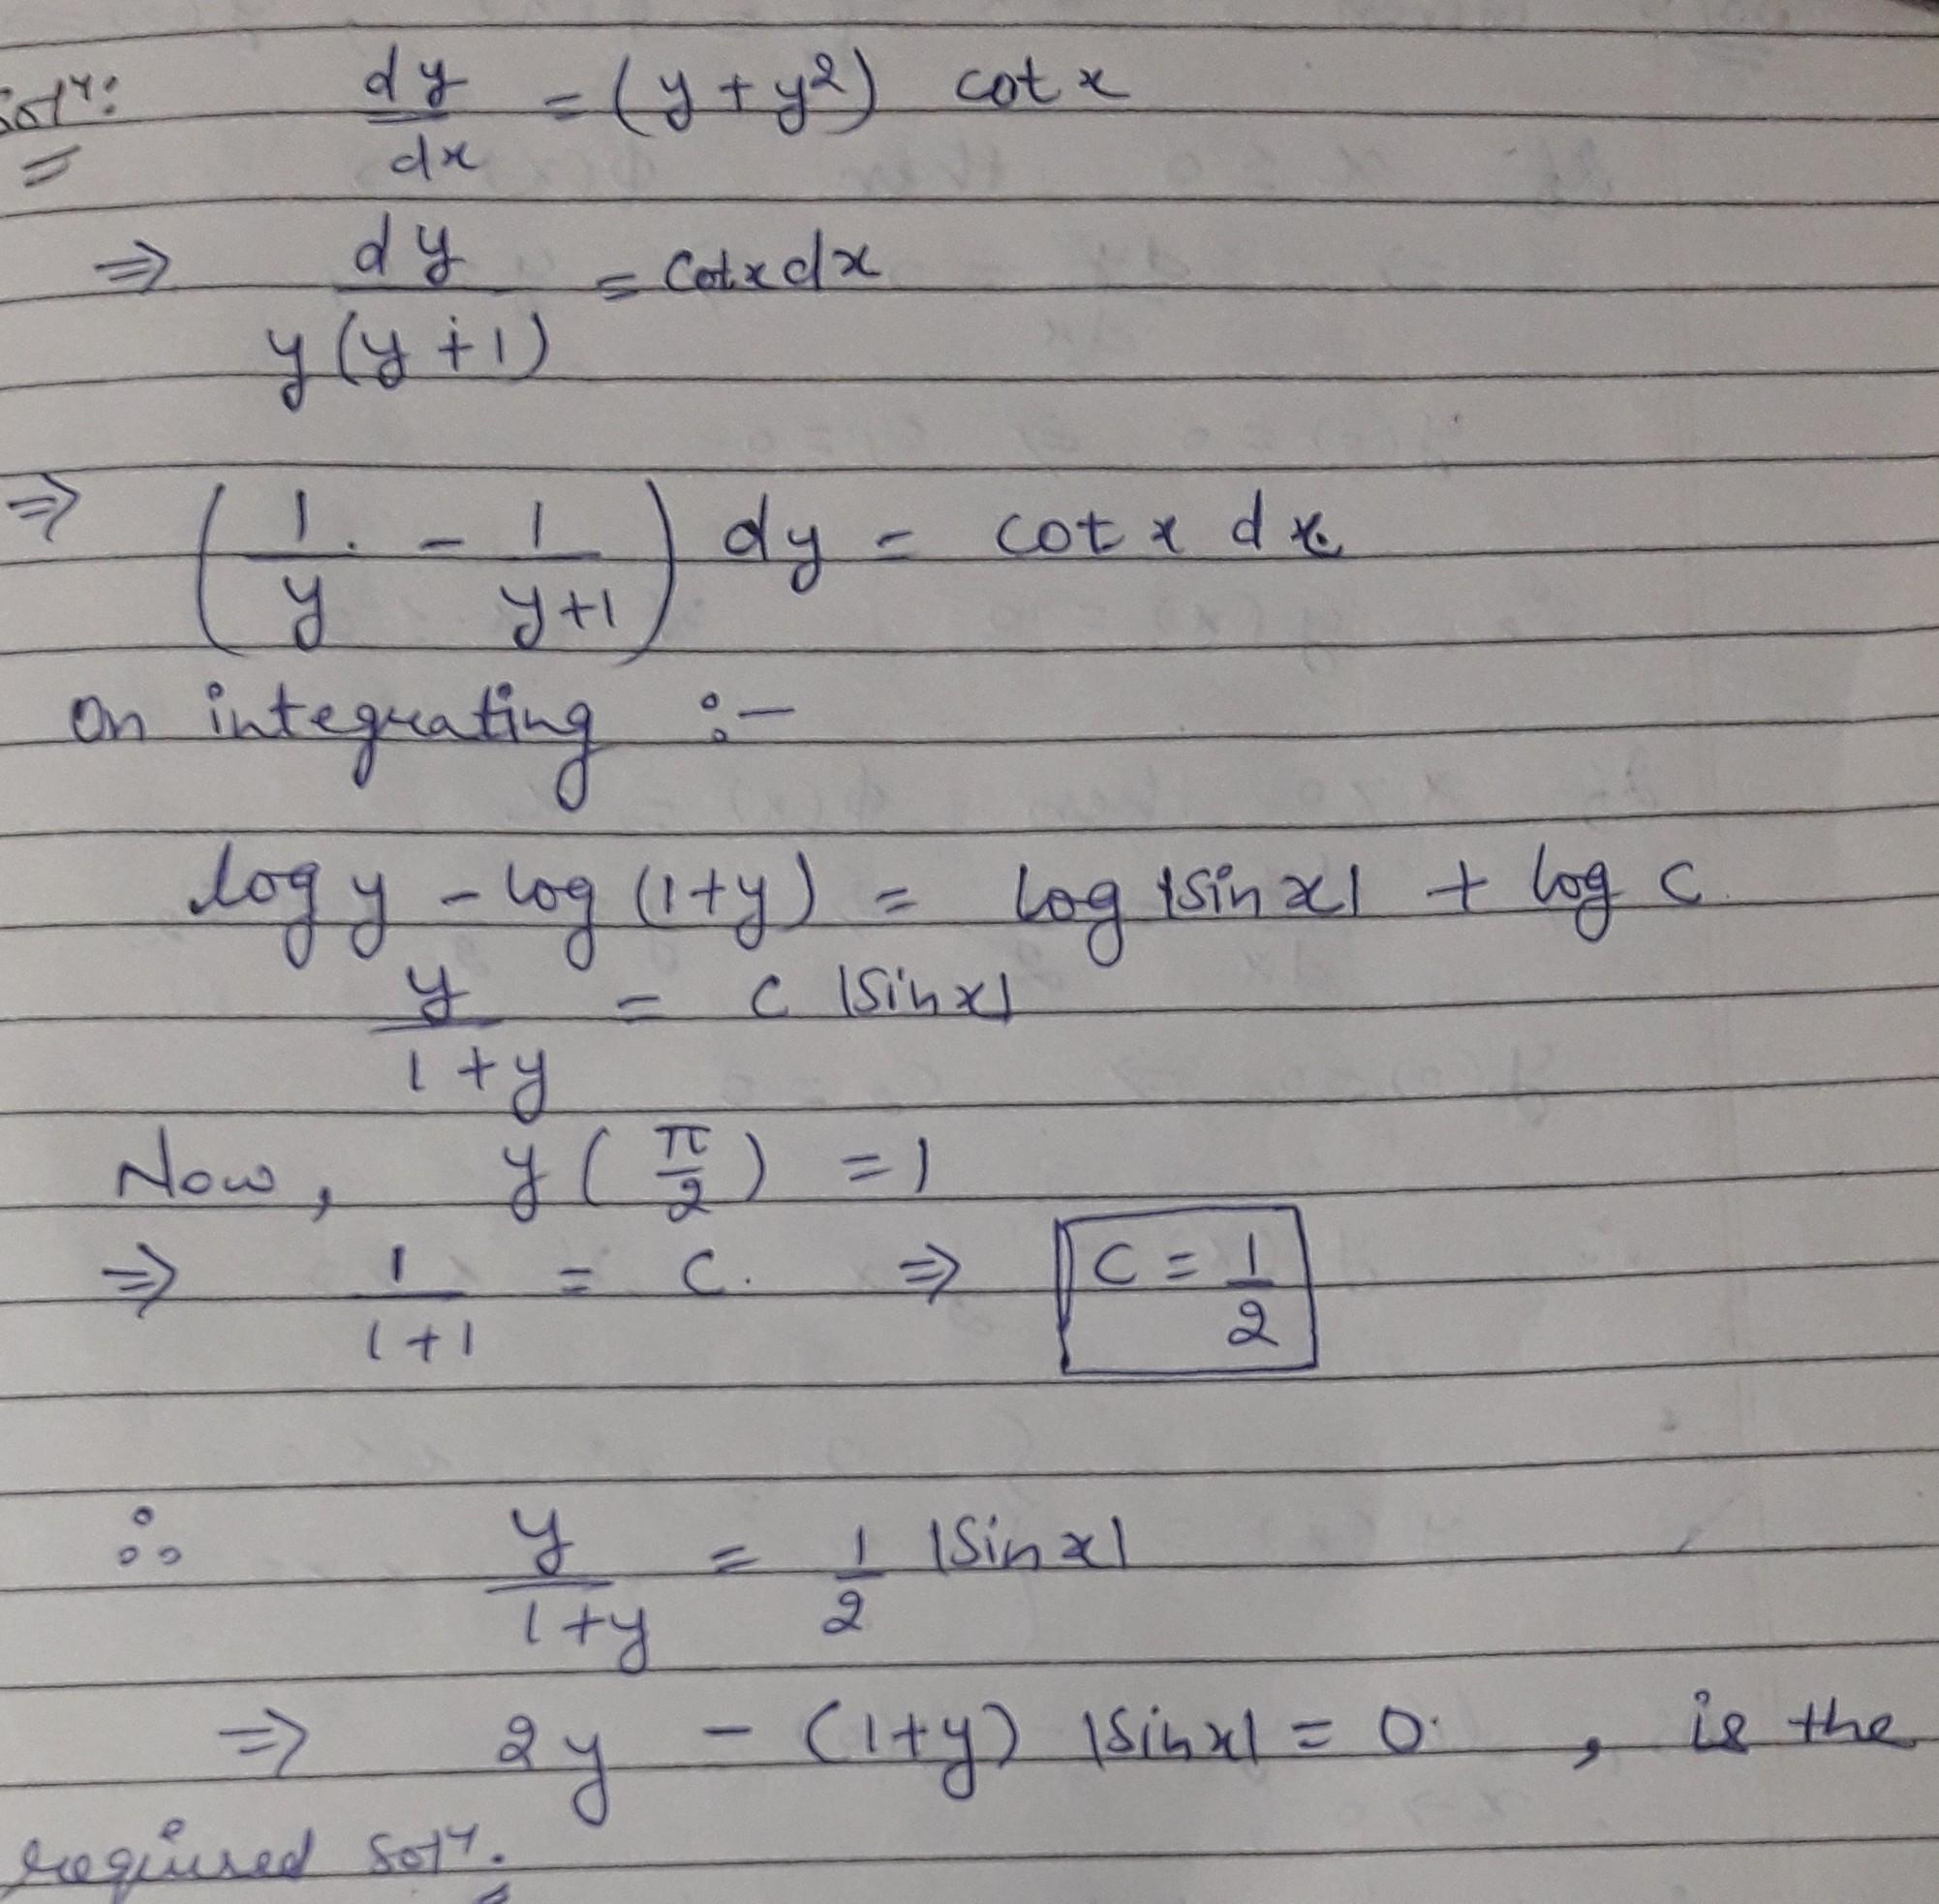 Solⁿ: dy/dx = (y + y²) cot x
⇒ dy/y(y+1) = Cotx dx
⇒ (1/y - 1/y+1) dy = cot x dx
On integrating :-
log y - log (1+y) = log |sin x| + log c
y/1+y = c |Sin x|
Now, y(π/2) = 1
⇒ 1/1+1 = c. ⇒ c = 1/2
∴ y/1+y = 1/2 |Sin x|
⇒ 2y - (1+y) |Sin x| = 0 , is the
required solⁿ.